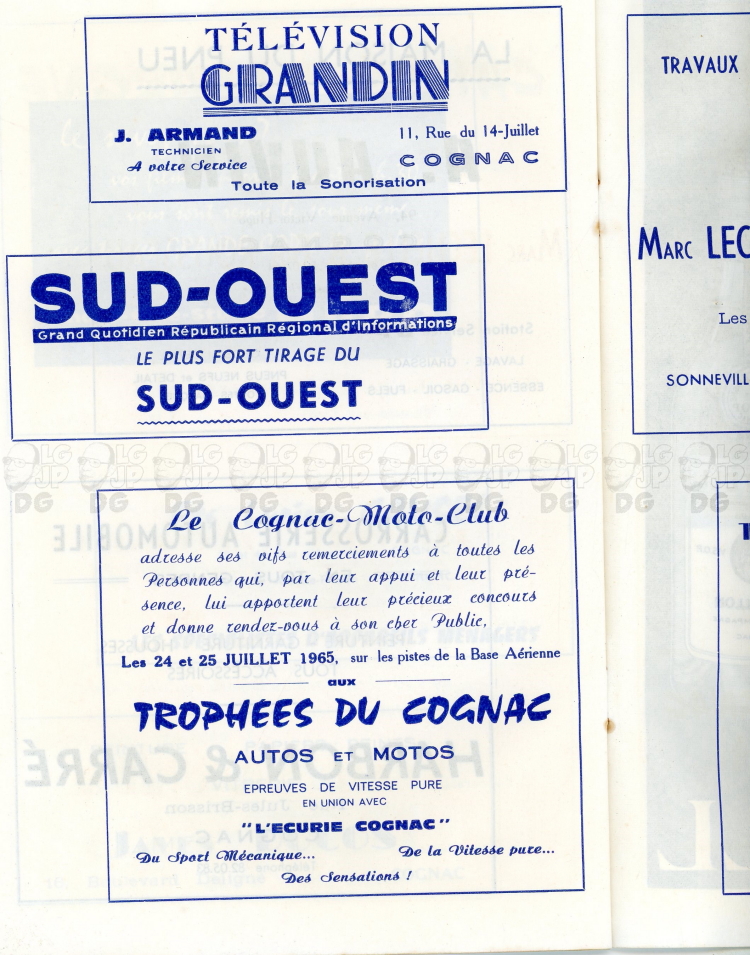 TÉLÉVISION
GRANDIN
J. ARMAND
TECHNICIEN
A votre Service
11, Rue du 14-Juillet
COGNAC
Toute la Sonorisation
SUD-OUEST
Grand Quotidien Républicain Régional d'Informations
LE PLUS FORT TIRAGE DU
SUD-OUEST
Le Cognac-Moto-Club
adresse ses vifs remerciements à toutes les
Personnes qui, par leur appui et leur pré-
sence, lui apportent leur précieux concours
et donne rendez-vous à son cher Public,
Les 24 et 25 JUILLET 1965, sur les pistes de la Base Aérienne
aux
TROPHEES DU COGNAC
AUTOS ET MOTOS
EPREUVES DE VITESSE PURE
EN UNION AVEC
"L'ECURIE COGNAC"
Du Sport Mécanique...
De la Vitesse pure...
Des Sensations !
TRAVAUX
MARC LEC
Les
SONNEVILL